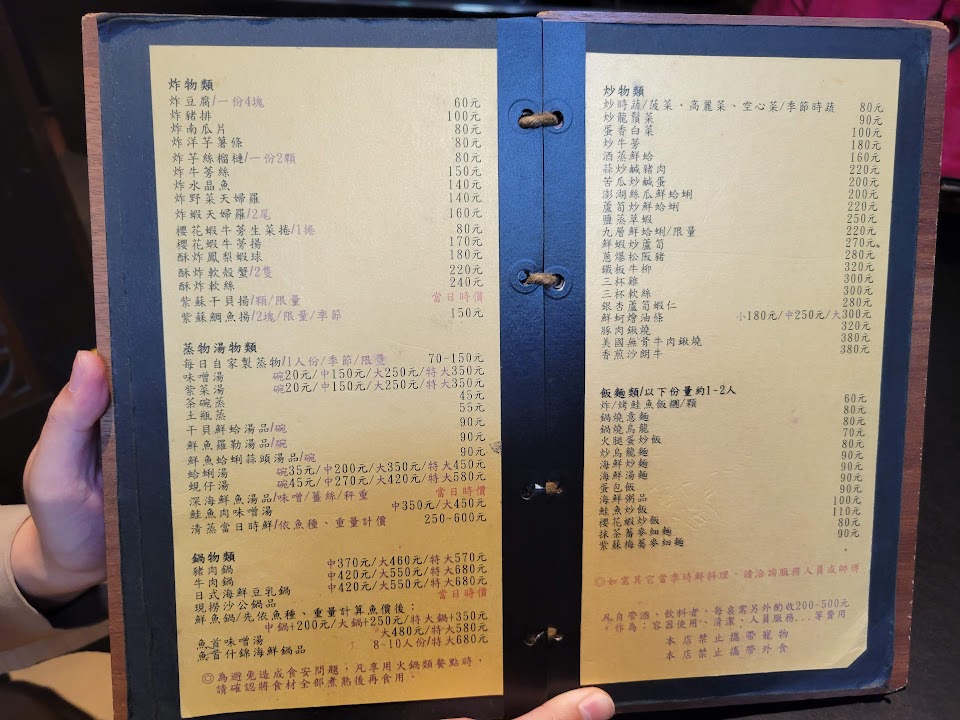 炸物類
炸豆腐/一份4塊 60元
炸豬排 100元
炸南瓜片 80元
炸洋芋薯條 80元
炸芋絲榴槤/一份2顆 80元
炸牛蒡絲 150元
炸水晶魚 140元
炸野菜天婦羅 140元
炸蝦天婦羅/2尾 160元
櫻花蝦牛蒡生菜捲/1捲 80元
櫻花蝦牛蒡揚 170元
酥炸鳳梨蝦球 180元
酥炸軟殼蟹/2隻 220元
酥炸軟絲 240元
紫蘇干貝揚/顆/限量 當日時價
紫蘇鯛魚揚/2塊/限量/季節 150元
蒸物湯物類
每日自家製蒸物/1人份/季節/限量 70-150元
味噌湯 碗20元/中150元/大250元/特大350元
紫菜湯 碗20元/中150元/大250元/特大350元
茶碗蒸 45元
土瓶蒸 55元
干貝鮮蛤湯品/碗 90元
鮮魚羅勒湯品/碗 90元
鮮魚蛤蜊蒜頭湯品/碗 90元
蛤蜊湯 碗35元/中200元/大350元/特大450元
蜆仔湯 碗45元/中270元/大420元/特大580元
深海鮮魚湯品/味噌/薑絲/秤重 當日時價
鮭魚肉味噌湯 中350元/大450元
清蒸當日時鮮/依魚種、重量計價 250-600元
鍋物類
豬肉鍋 中370元/大460元/特大570元
牛肉鍋 中420元/大550元/特大680元
日式海鮮豆乳鍋 中420元/大550元/特大680元
現撈沙公鍋品 當日時價
鮮魚鍋/先依魚種、重量計算魚價後：
中鍋+200元/大鍋+250元/特大鍋+350元
魚首味噌湯 大480元/特大580元
魚首什錦海鮮鍋品 8-10人份/特大680元
◎為避免造成食安問題，凡享用火鍋類餐點時，
請確認將食材全部煮熟後再食用。
炒物類
炒時蔬/菠菜、高麗菜、空心菜/季節時蔬 80元
炒龍鬚菜 90元
蛋香白菜 100元
炒牛蒡 180元
酒蒸鮮蛤 160元
蒜炒鹹豬肉 220元
苦瓜炒鹹蛋 200元
澎湖絲瓜鮮蛤蜊 200元
蘆筍炒鮮蛤蜊 220元
鹽蒸草蝦 250元
九層鮮蛤蜊/限量 220元
鮮蝦炒蘆筍 270元
蔥爆松阪豬 280元
鐵板牛柳 320元
三杯雞 300元
三杯軟絲 300元
銀杏蘆筍蝦仁 280元
鮮蚵燴油條 小180元/中250元/大300元
豚肉鍬燒 320元
美國無骨牛肉鍬燒 380元
香煎沙朗牛 380元
飯麵類/以下份量約1~2人
炸/烤鮭魚飯糰/顆 60元
鍋燒意麵 80元
鍋燒烏龍 80元
火腿蛋炒飯 70元
炒烏龍麵 80元
海鮮炒麵 90元
海鮮湯麵 90元
蛋包飯 90元
海鮮粥品 90元
鮭魚炒飯 100元
櫻花蝦炒飯 110元
抹茶蕎麥細麵 80元
紫蘇梅蕎麥細麵 90元
◎如需其它當季時鮮料理，請洽詢服務人員或師傅
凡自帶酒、飲料者，每桌需另外酌收200-500元
。作為：容器使用、清潔、人員服務...等費用
本店禁止攜帶寵物
本店禁止攜帶外食